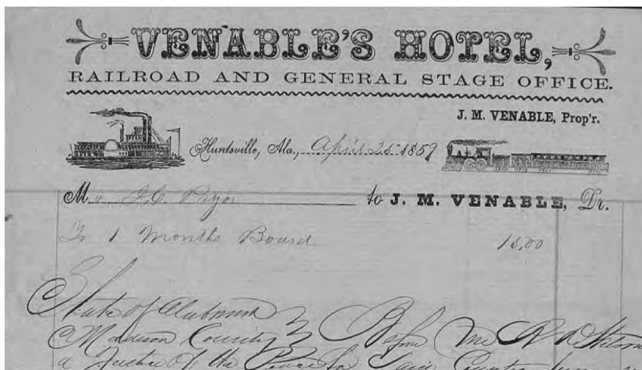 VENABLE'S HOTEL,
RAILROAD AND GENERAL STAGE OFFICE.
J. M. VENABLE, Prop'r.
Huntsville, Ala., April 25 1859
M to J. M. VENABLE, Dr.
To 1 Months Board 15.00
State of Alabama
Madison County Before me
a Justice of the Peace for Said County